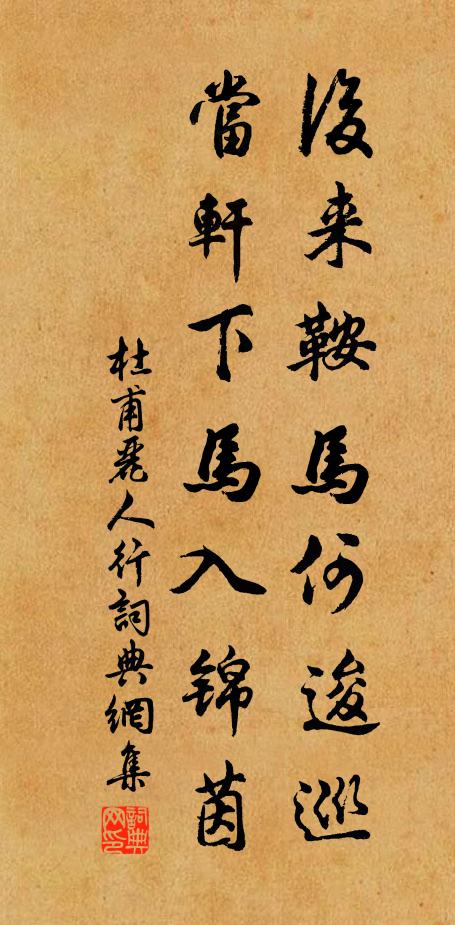 後来鞍馬何逡巡
當軒下馬入錦茵
杜甫麗人行詞典網集
詞典网印